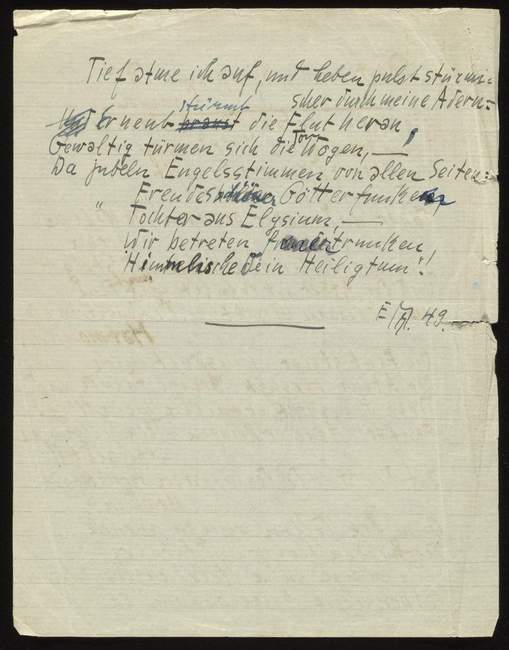 Tief atme ich auf, und Leben pulst stürmi-
scher durch meine Adern:-
stürmt
Erneut braust die Flut heran,
Gewaltig türmen sich die Wogen, —
Ton
Da jubeln Engelsstimmen von allen Seiten:
Freude schöner Götterfunken
" Tochter aus Elysium, —
Wir betreten feuertrunken
Himmlische Dein Heiligtum"!
49.